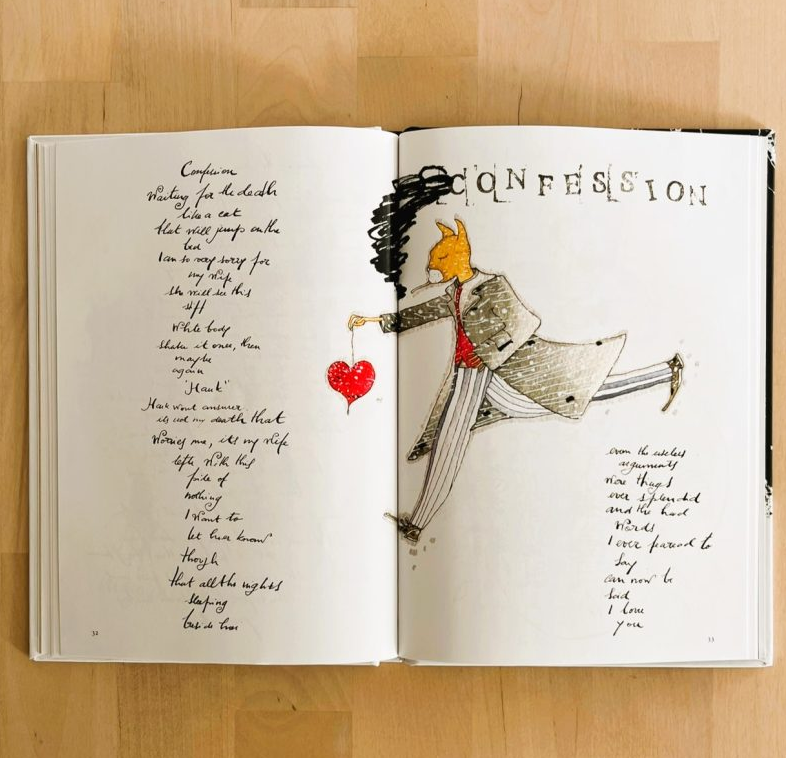 Confession
Waiting for the death
like a cat
that will jump on the
bed
I am so very sorry for
my wife
she will see this
stiff
White body
shake it once, then
maybe
again
"Hank"
Hank wont answer
its not my death that
Worries me, its my wife
left with this
pile of
nothing
I want to
let her know
though
that all the nights
sleeping
beside her
32
CONFESSION
even the useless
arguments
were things
ever splendid
and the hard
Words
I ever feared to
Say
can now be
Said
I love
you
33